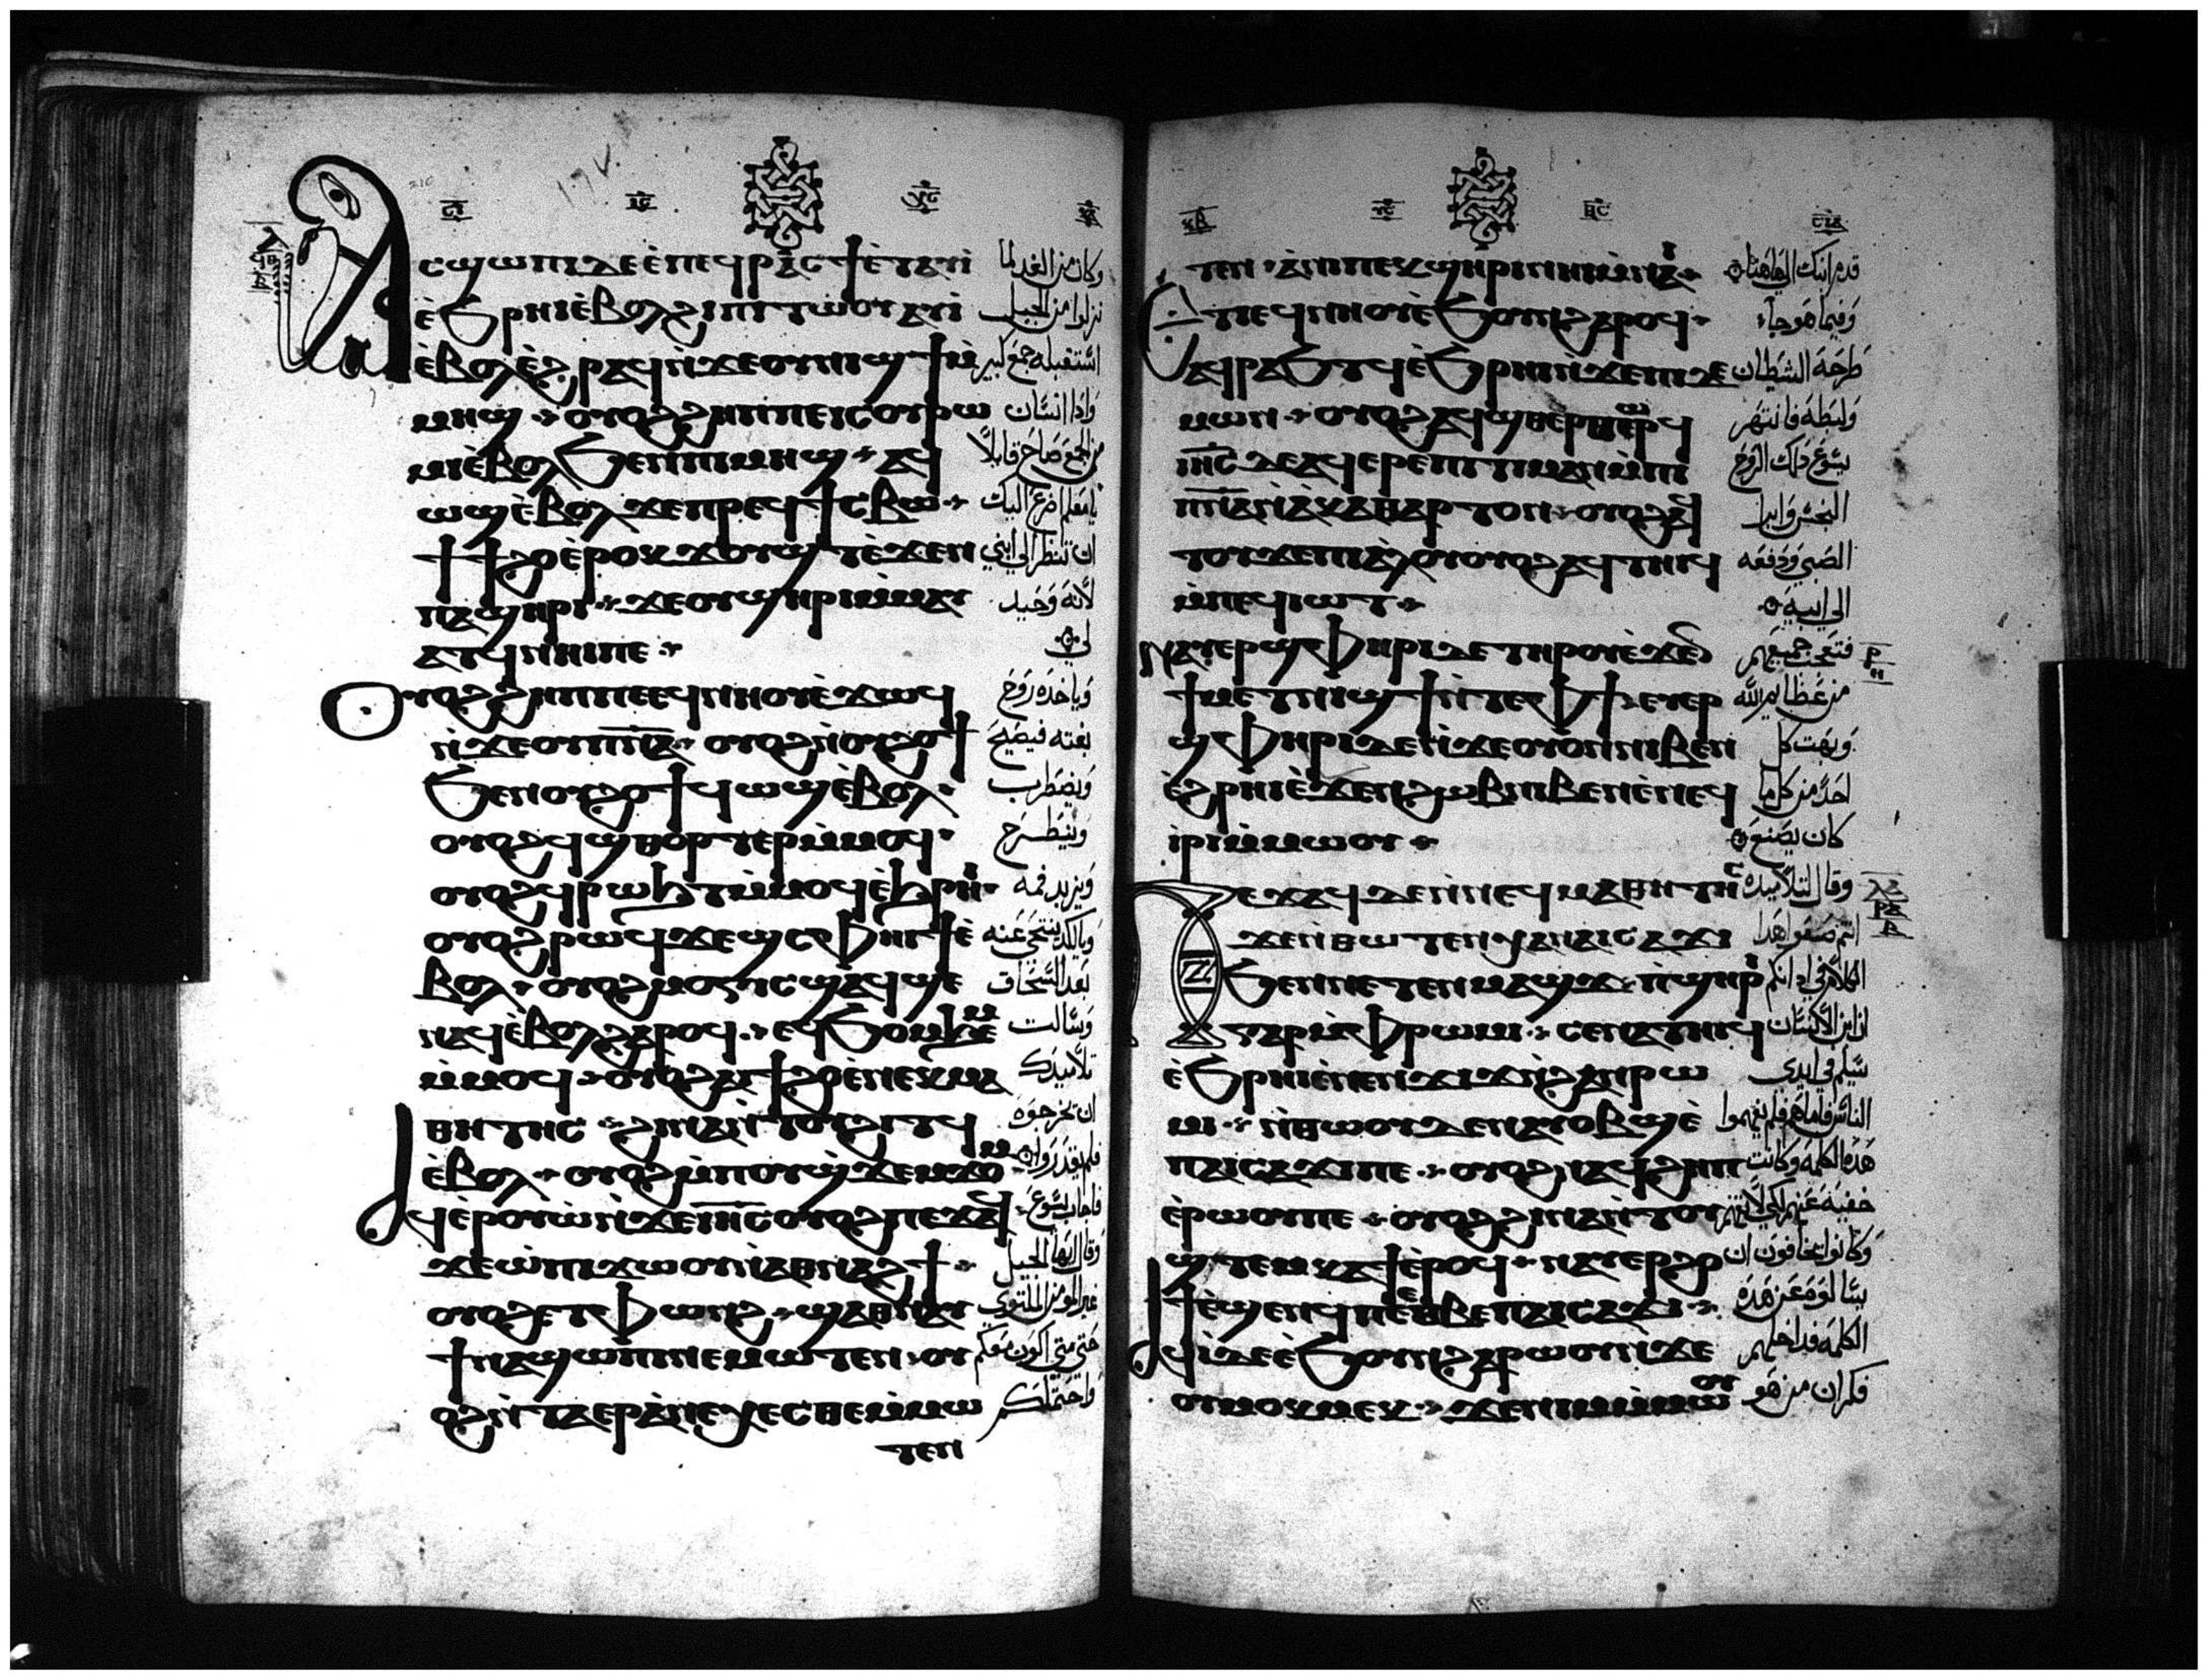 ⲁⲥϣⲱⲡⲓ ⲇⲉ ⲉ̀ⲡⲉϥⲣⲁⲥϯ ⲉ̀ⲧⲁⲩⲓ̀
ⲉ̀ϧⲣⲏⲓ ⲉ̀ⲃⲟⲗ ϩⲓⲡⲓⲧⲱⲟⲩ ⲁϥⲓ̀
ⲉ̀ⲃⲟⲗ ⲉ̀ϩⲣⲁϥ ⲛ̀ϫⲉⲟⲩⲛⲓϣϯ ⲙ̀
ⲙⲏϣ ⲟⲩⲟϩ ϩⲏⲡⲡⲉ ⲓⲥ ⲟⲩⲣⲱ
ⲙⲓ ⲉ̀ⲃⲟⲗ ϧⲉⲛⲡⲓⲙⲏϣ ⲁϥ
ⲱϣ ⲉ̀ⲃⲟⲗ ϫⲉ ⲡⲣⲉϥϯⲥⲃⲱ
ϯϯϩⲟ ⲉ̀ⲣⲟⲕ ϫⲟⲩϣⲧ ⲉ̀ϫⲉⲛ
ⲡⲁϣⲏⲣⲓ ϫⲉ ⲟⲩϣⲏⲣⲓ ⲙ̀ⲙⲁⲩ
ⲁⲧϥ ⲛⲏⲓ ⲡⲉ
ⲟⲩⲟϩ ϩⲏⲡⲡⲉ ⲉϥⲛⲏⲟⲩ ⲉ̀ϫⲱϥ
ⲛ̀ϫⲉⲟⲩⲡ̅ⲛ̅ⲁ̅ ⲟⲩⲟϩ ⲛ̀ⲟⲩϩⲟϯ
ϧⲉⲛⲟⲩϩⲟϯ ϥⲱϣ ⲉ̀ⲃⲟⲗ
ⲟⲩⲟϩ ϥϣⲑⲟⲣⲧⲉⲣ ⲙ̀ⲙⲟϥ
ⲟⲩⲟϩ ϥⲣⲱϧⲧ ⲙ̀ⲙⲟϥ ⲉ̀ϧⲣⲏⲓ
ⲟⲩⲟϩ ⲣⲱϥ ϫⲉϣⲥⲫⲏⲓϯ ⲉ̀
ⲃⲟⲗ ⲟⲩⲟϩ ⲙⲟⲅⲓⲥ ϣⲁϥϣⲉ
ⲛⲁϥ ⲉ̀ⲃⲟⲗ ϩⲁⲣⲟϥ ⲉϥϧⲟⲙϧⲉⲙ
ⲙ̀ⲙⲟϥ ⲟⲩⲟϩ ⲁⲓϯϩⲟ ⲉ̀ⲛⲉⲕⲙⲁ
ⲑⲏⲧⲏⲥ ϩⲓⲛⲁ ⲛ̀ⲧⲟⲩϩⲓⲧϥ
ⲉ̀ⲃⲟⲗ ⲟⲩⲟϩ ⲙ̀ⲡⲟⲩϣϫⲉⲙϫⲟⲙ
ⲁϥⲉⲣⲟⲩⲱ̀ ⲛ̀ϫⲉⲓⲏ̅ⲥ̅ ⲟⲩⲟϩ ⲡⲉϫⲁϥ
ϫⲉ ⲱ̀ ⲡⲓϫⲱⲟⲩ ⲛ̀ⲁⲑⲛⲁϩϯ
ⲟⲩⲟϩ ⲉⲧⲫⲱⲛϩ ϣⲁⲑⲛⲁⲩ
ϯⲛⲁϣⲱⲡⲓ ⲛⲉⲙⲱⲧⲉⲛ ⲟⲩ
ⲟϩ ⲛ̀ⲧⲁⲉⲣⲁ̀ⲛⲉⲭⲉⲥⲑⲉ ⲙ̀ⲙⲱ
ⲧⲉⲛ
وكان من الغد لما
نزلوا من الجبل
استقبله جمع كبير
واذا انسان
من الجمع صاح قايلا
يا معلم اضرع اليك
ان تنظر الي ابني
لانه وحيد
لي
وياخذه روح
بغته فيصيح
ويضطرب
وينطرح
ويزبد فمه
وبالكد يتنحي عنه
بعد السحاق
وسالت
تلاميذك
ان يخرجوه
فلم يقدروا
فاجاب يسوع
وقال ايها الجيل
غير المومن الملتوي
حتي متي اكون معكم
واحتملكم
ⲧⲉⲛ ⲁ̀ⲛⲓ ⲡⲉⲕϣⲏⲣⲓ ⲛⲏⲓ ⲙ̀ⲛⲁⲓ
ⲉⲧⲓ ⲉϥⲛⲏⲟⲩ ⲉ̀ϧⲟⲩⲛ ϩⲁⲣⲟϥ
ⲁϥⲣⲁϧⲧϥ ⲉ̀ϧⲣⲏⲓ ⲛ̀ϫⲉⲡⲓⲇⲉ
ⲙⲱⲛ ⲟⲩⲟϩ ⲁϥϣⲑⲉⲣⲑⲱⲣϥ
ⲓⲏ̅ⲥ̅ ⲇⲉ ⲁϥⲉⲣⲉⲡⲓⲧⲓⲙⲁⲛ ⲙ̀ⲡⲓ
ⲡ̅ⲛ̅ⲁ̅ ⲛ̀ⲁ̀ⲕⲁⲑⲁⲣⲧⲟⲛ ⲟⲩⲟϩ ⲁϥ
ⲧⲟⲩϫⲉ ⲡⲓⲁ̀ⲗⲟⲩ ⲟⲩⲟϩ ⲁϥⲧⲏⲓϥ
ⲙ̀ⲡⲉϥⲓⲱⲧ
ⲛⲁⲩⲉⲣϣⲫⲏⲣⲓ ⲇⲉ ⲧⲏⲣⲟⲩ ⲉ̀ϫⲉⲛ
ϯⲙⲉⲧⲛⲓϣϯ ⲛ̀ⲧⲉⲫϯ ⲉⲩⲉⲣ
ϣⲫⲏⲣⲓ ⲇⲉ ⲛ̀ϫⲉⲟⲩⲟⲛ ⲛⲓⲃⲉⲛ
ⲉ̀ϩⲣⲏⲓ ⲉ̀ϫⲉⲛϩⲱⲃ ⲛⲓⲃⲉⲛ ⲉ̀ⲛⲉϥ
ⲓⲣⲓ ⲙ̀ⲙⲱⲟⲩ
ⲡⲉϫⲁϥ ⲇⲉ ⲛ̀ⲛⲉϥⲙⲁⲑⲏⲧⲏⲥ
ϫⲉ ⲛ̀ⲑⲱⲧⲉⲛ ⲭⲁⲛⲁⲓⲥⲁϫⲓ
ϧⲉⲛⲛⲉⲧⲉⲛⲙⲁϣϫ ⲡ̀ϣⲏⲣⲓ
ⲅⲁⲣ ⲙ̀ⲫⲣⲱⲙⲓ ⲥⲉⲛⲁⲧⲏⲓϥ
ⲉ̀ϧⲣⲏⲓ ⲉ̀ⲛⲉⲛϫⲓϫ ⲛ̀ϩⲁⲛⲣⲱ
ⲙⲓ ⲛ̀ⲑⲱⲟⲩ ⲇⲉ ⲛⲁⲩⲟⲃϣ ⲉ̀
ⲡⲁⲓⲥⲁϫⲓ ⲡⲉ ⲟⲩⲟϩ ⲛⲁϥϩⲏⲡ
ⲉ̀ⲣⲱⲟⲩ ⲡⲉ ⲟⲩⲟϩ ϩⲓⲛⲁ ⲛ̀ⲧⲟⲩ
ϣⲧⲉⲙⲕⲁϯ ⲉ̀ⲣⲟϥ ⲛⲁⲩⲉⲣϩⲟ
ϯ ⲉ̀ϣⲉⲛϥ ⲡⲉ ⲉⲑⲃⲉⲡⲁⲓⲥⲁϫⲓ
ⲁϥⲓ̀ ⲇⲉ ⲉ̀ϧⲟⲩⲛ ϩⲁⲣⲱⲟⲩ ⲛ̀ϫⲉ
ⲟⲩⲙⲟⲕⲙⲉⲕ ϫⲉ ⲛⲓⲙ ⲙ̀ⲙⲱⲟⲩ
قدم ابنك الي هاهنا
وفيما هو جاء
طرحه الشيطان
ولبطه فانتهر
يسوع ذلك الروح
النجس وابرا
الصبي ودفعه
الي ابيه
فتعجب جميعهم
من عظايم الله
وبهت كل
احد من كل ما
كان يصنع
وقال لتلاميذه
انتم ضعوا هذا
الكلام في اذانكم
ان ابن الانسان
سيسلم في ايدي
الناس فاما هم فلم يفهموا
هذه الكلمه وكانت
خفيه عنهم لكي لا يفهم
وكانوا يخافون ان
يسالوه عن هذه
الكلمه فداخلهم
فكر ان من هو